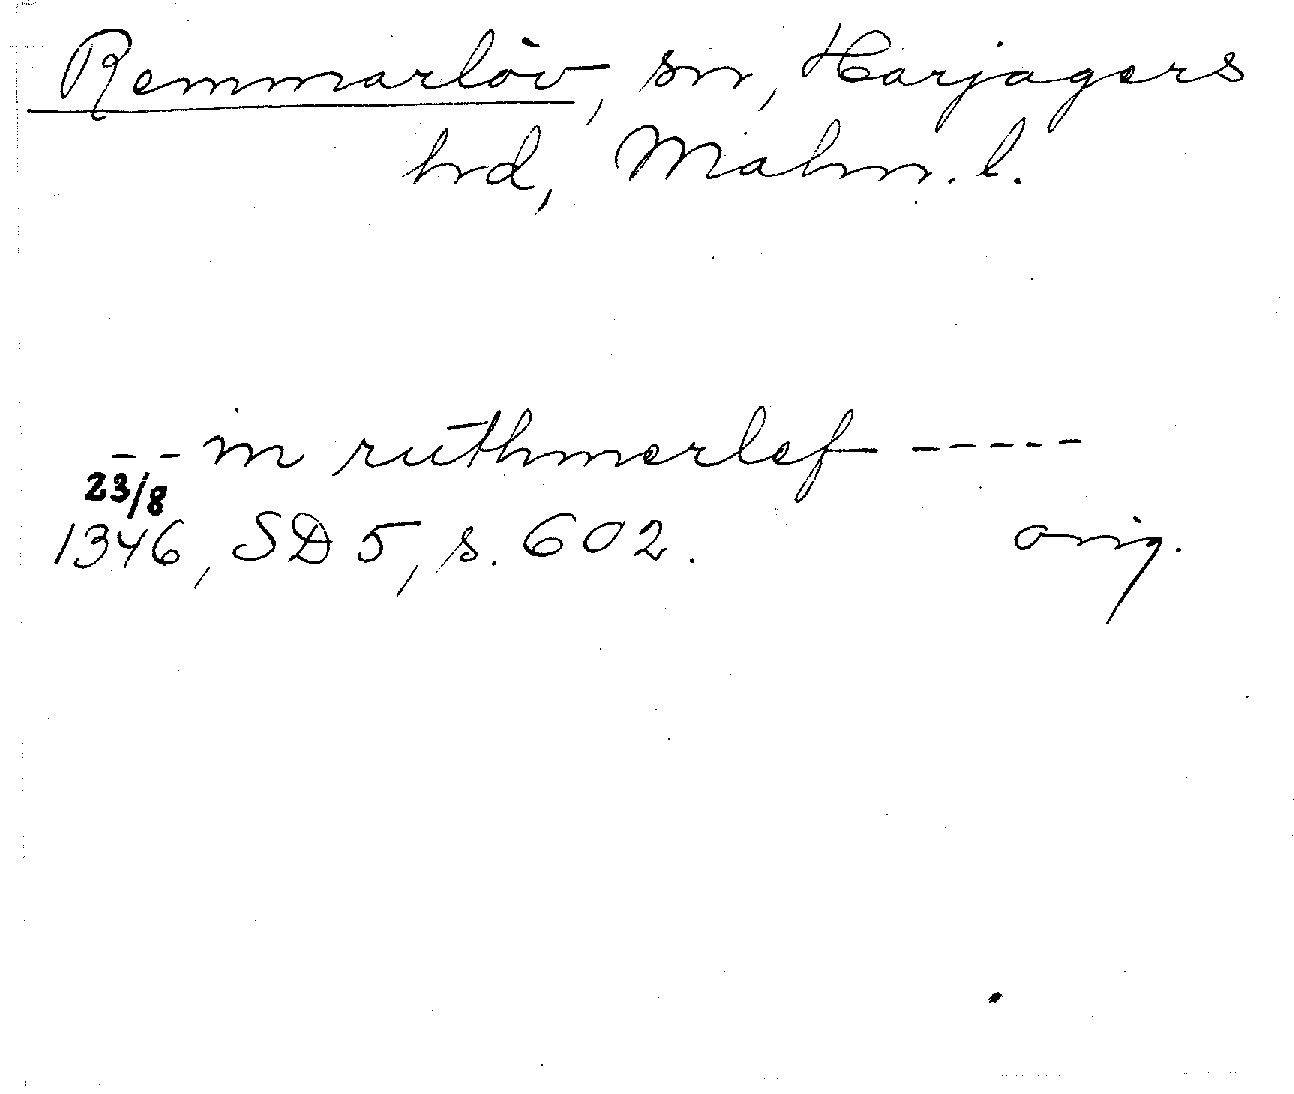 Remmarlöv, sn, Harjagers
hrd, Malm. l.
-- in ruthmerlef -----
23/8
1346, SD 5, s. 602. orig.